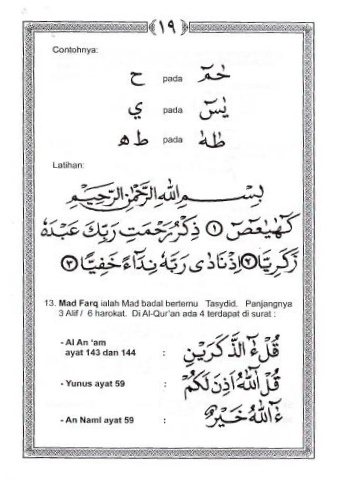 ١٩
Contohnya:
ح pada حٰمٓ
ي pada يٰسٓ
ط ه pada طٰهٰ
Latihan:
بِسْمِ اللهِ الرَّحْمٰنِ الرَّحِيْمِ
كٓهٰيٰعٓصٓ ﴿١﴾ ذِكْرُ رَحْمَتِ رَبِّكَ عَبْدَهٗ
زَكَرِيَّا ﴿٢﴾ اِذْنَادٰى رَبَّهٗ نِدَآءً خَفِيًّا ﴿٣﴾
13. Mad Farq ialah Mad badal bertemu Tasydid. Panjangnya
3 Alif / 6 harokat. Di Al-Qur'an ada 4 terdapat di surat :
- Al An 'am
ayat 143 dan 144 : قُلْ ءٰٓالذَّكَرَيْنِ
- Yunus ayat 59 : قُلْ آللهُ اَذِنَ لَكُمْ
- An Naml ayat 59 : ءٰٓاللهُ خَيْرٌ